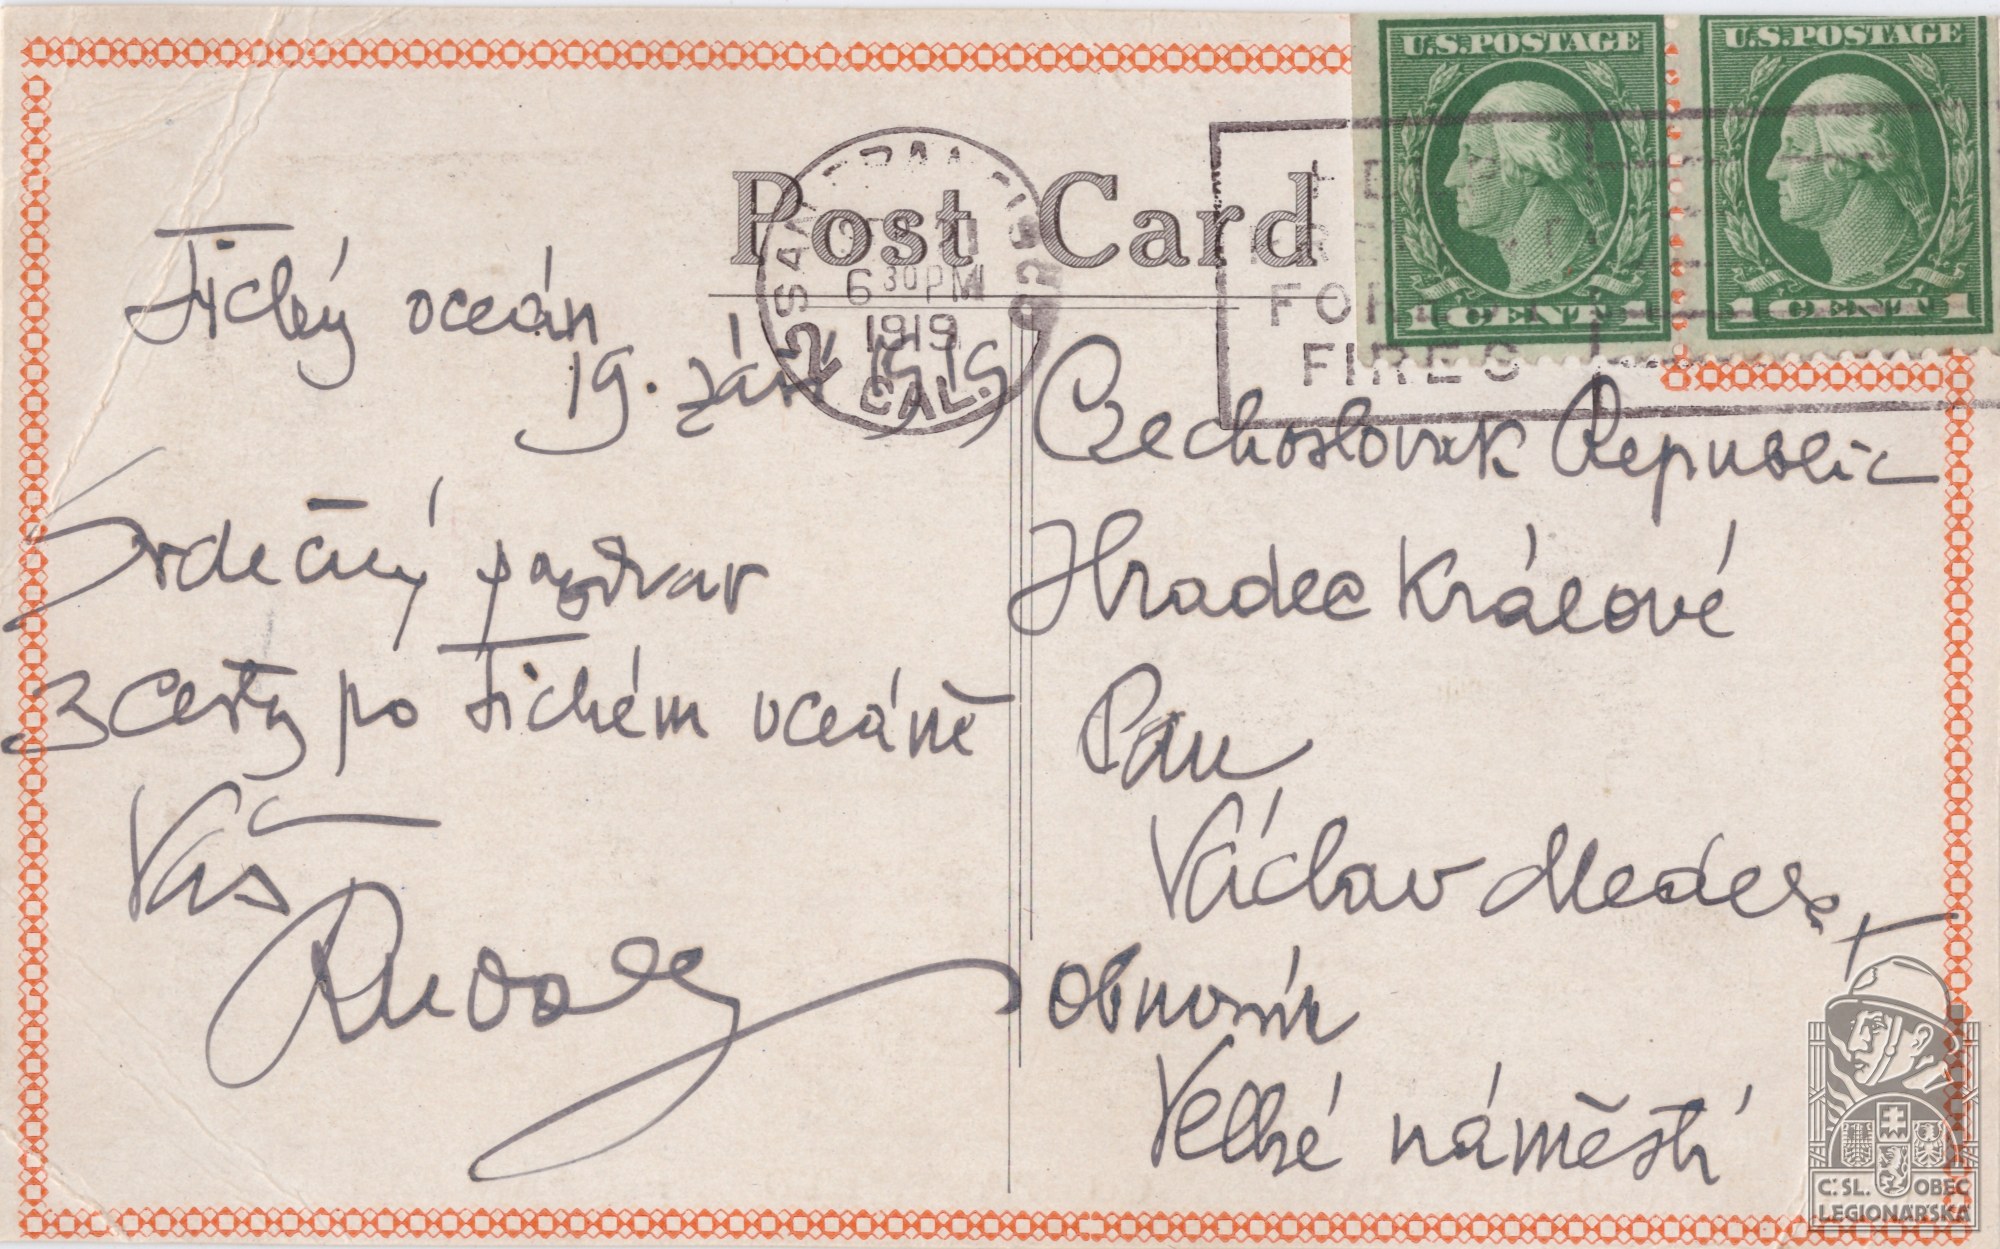 U.S.POSTAGE
U.S.POSTAGE
1 CENT 1
1 CENT 1
Post Card
SAN
6 30 PM
1919
CAL.
2
FIRES
Tichý oceán
19. září 1919
Srdečný pozdrav
z cesty po Tichém oceáně
Váš
Rudolf
Czechoslovak Republic
Hradec Králové
Pan
Václav
obuvník
Velké náměstí
Č: SL. OBEC
LEGIONÁŘSKÁ